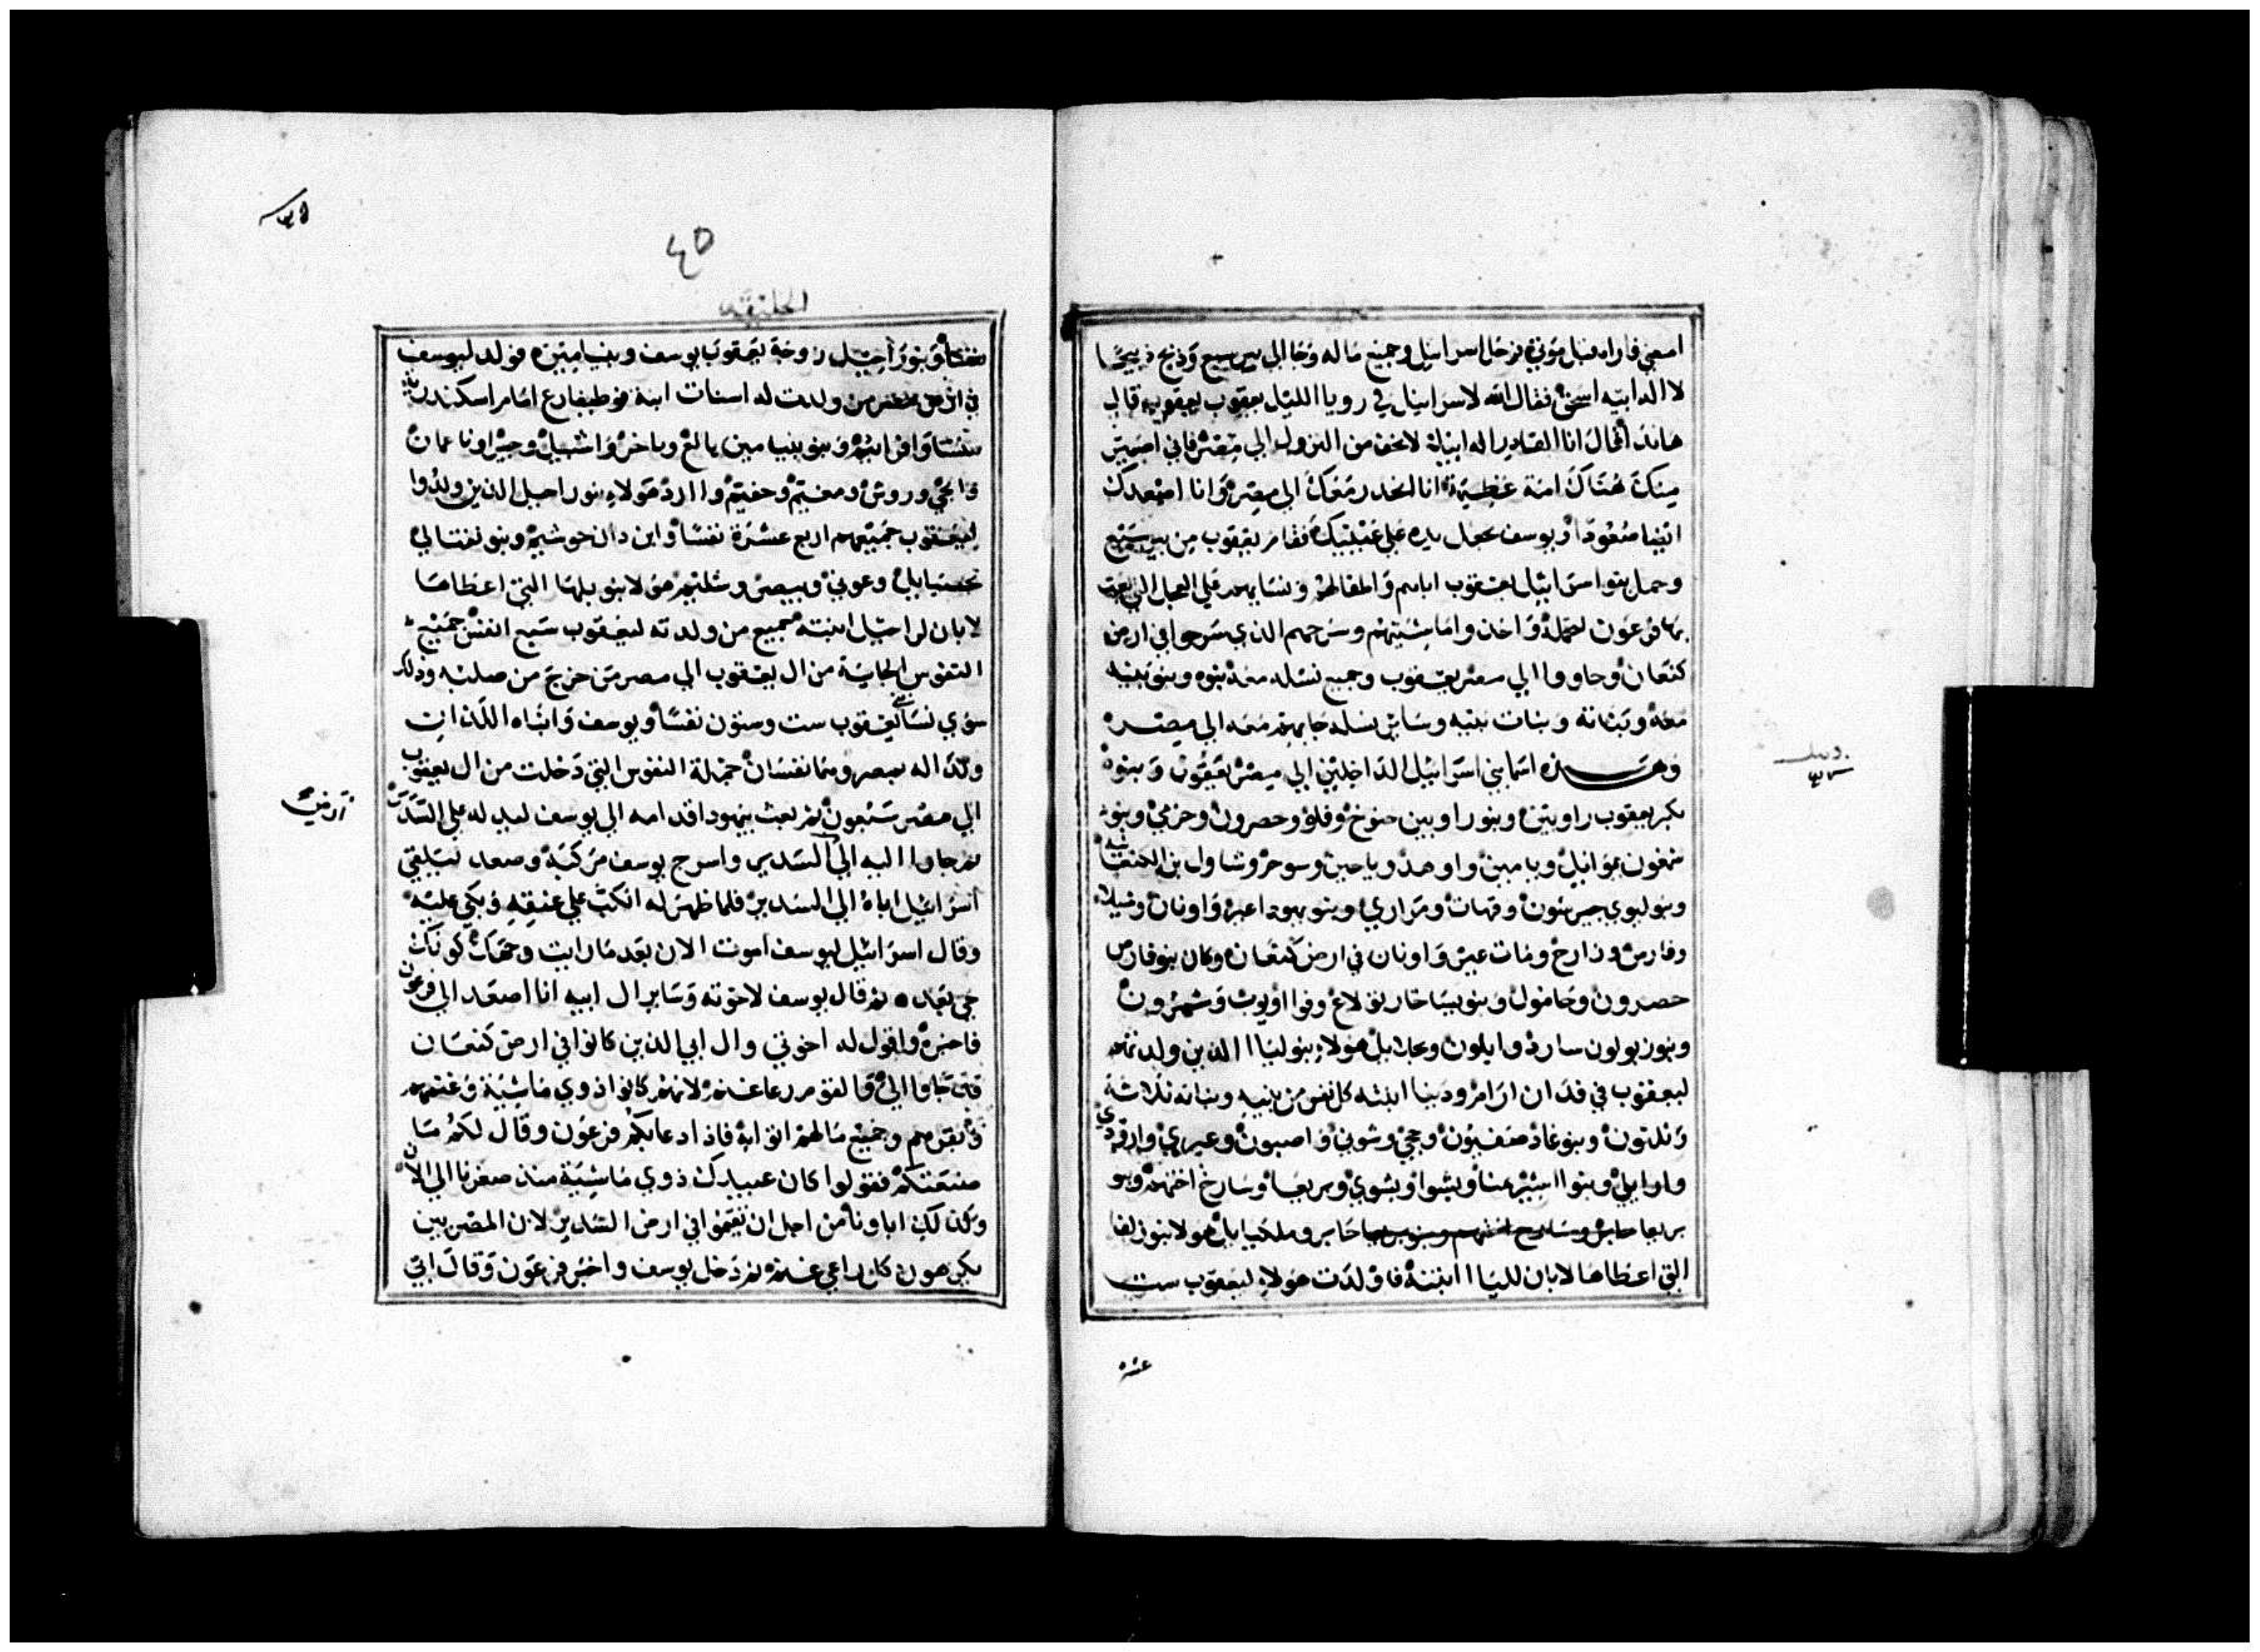 امضي فاراه قبل موتي ثم رحل اسراييل وجميع ماله وجا الي بير سبع وذبح ذبيحا
لا اله ابيه اسحق فقال الله لاسراييل في رويا الليل يعقوب يعقوب قال
هانذا فقال انا القادر اله ابيك لا تخف من النزول الي مصر فاني اصير
منك هناك امة عظيمة انا انحدر معك الي مصر وانا اصعدك
ايضا صعودا ويوسف يجعل يده علي عينيك فقام يعقوب من بير سبع
وحمل بنوا اسراييل يعقوب اباهم واطفالهم ونسايهم علي العجل التي بعث
بها فرعون لحمله واخذوا ماشيتهم وسرحهم الذي سرحوا في ارض
كنعان وجاووا الي مصر يعقوب وجميع نسله معه بنوه وبنو بنيه
معه وبناته وبنات بنيه وساير نسله جا بهم معه الي مصر
وهذه اسما بني اسراييل الداخلين الي مصر يعقوب وبنوه
بكر يعقوب راوبين وبنو راوبين حنوخ وفلو وحصرون وخرمي وبنو
شمعون يموايل ويامين واوهد وياخين وسوحر وشاول بن الكنعانيه
وبنو ليوي جيرشون وقهات ومراري وبنو يهودا عير واونان وشيلا
وفارص وزارح ومات عير واونان في ارض كنعان وكان بنو فارص
حصرون وحامول وبنو يساخار تولاع وفوا ويوب وشمرون
وبنو زبولون سارد وايلون ويحلايل هولاء بنو ليا الذين ولدتهم
ليعقوب في فدان ارام ودينا ابنته كل نفس من بنيه وبناته ثلاثة
وثلثون وبنو غاد صفيون وحجي وشوني واصبون وعيري وارودي
وارايلي وبنوا اشير يمنا ويشوا ويشوي وبريعا وسارح اختهم وبنو
بريعا حابر وملكيايل هولا بنو زلفا
التي اعطاها لابان لليا ابنته فاولدت هولاء ليعقوب ست
عشره
٣٥
٤٥
الخليقه
نفسا وبنو راحيل زوجة يعقوب يوسف وبنيامين فولد ليوسف
في ارض مصر من ولدت له اسنات ابنة فوطيفارع امام اسكندريه
منشا وافرايم وبنو بنيامين بالع وباخر واشبيل وجيرا ونا عمان
واحي وروش ومفيم وحفيم وارد هولاء بنو راحيل الذين ولدوا
ليعقوب جميعهم اربع عشرة نفسا وابن دان حوشيم وبنو نفتالي
يحصيايل وغوني وييصر وشليم هولا بنو بلها التي اعطاها
لابان لراحيل ابنته فجميع من ولدته ليعقوب سبع انفس جميع
النفوس الجاية من ال يعقوب الي مصر من خرج من صلبه وذلك
سوي نسا يعقوب ست وستون نفسا ويوسف وابناه اللذان
ولدا له بمصر وهما نفسان جملة النفوس التي دخلت من ال يعقوب
الي مصر سبعون ثم بعث يهودا قدامه الي يوسف ليدله علي السدير
ثم جاوا اليه الي السدير واسرج يوسف مركبه وصعد ليتلقي
اسراييل اباه الي السدير فلما ظهر له انكب علي عنقه وبكي عليه
وقال اسراييل ليوسف اموت الان بعد ما رايت وجهك كونك
حي بعد ثم قال يوسف لاخوته وساير ال ابيه انا اصعد الي فرعون
فاخبره واقول له اخوتي وال ابي الذين كانوا في ارض كنعان
قد جاوا الي والقوم رعا غنم لانهم كانوا ذوي ماشية وغنمهم
وبقرهم وجميع مالهم اتوا به فاذا دعاكم فرعون وقال لكم ما
صنعتكم فقولوا كان عبيدك ذوي ماشية منذ صغرنا الي الان
وكذلك اباونا من اجل ان تقيموا في ارض السدير لان المصريين
يكرهون كل راعي غنم ثم دخل يوسف واخبر فرعون وقال ابي